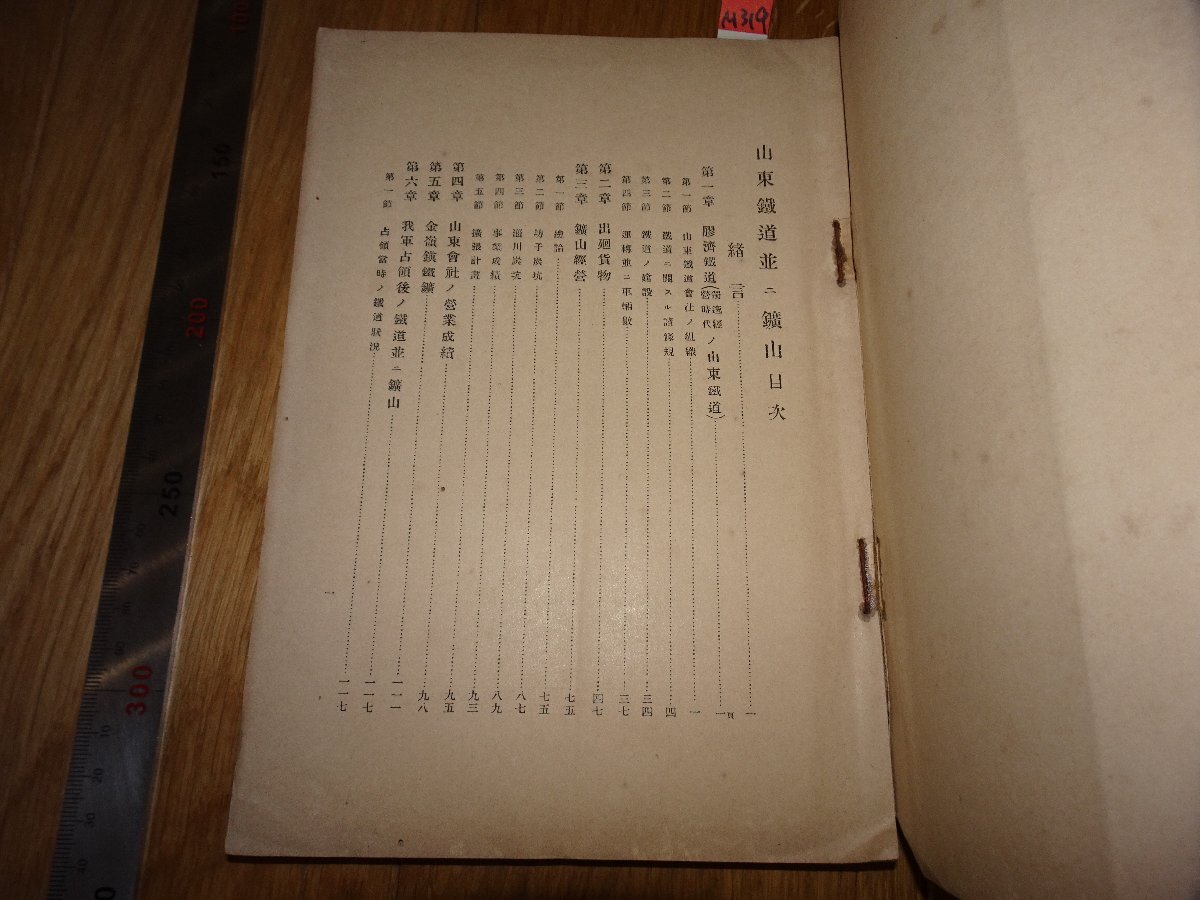 M319
山東鐵道並ニ鑛山目次
緒言 一頁
第一章 膠濟鐵道(獨逸經營時代ノ山東鐵道) 一
第一節 山東鐵道會社ノ組織 一
第二節 鐵道ニ關スル諸條規 四
第三節 鐵道ノ建設 三四
第四節 運轉並ニ車輛數 三七
第二章 出廻貨物 四七
第三章 鑛山經營 七五
第一節 總論 七五
第二節 坊子炭坑 八七
第三節 淄川炭坑 八九
第四節 事業成績 九三
第五節 擴張計畫 九五
第四章 山東會社ノ營業成績 九八
第五章 金嶺鎭鐵鑛 一一一
第六章 我軍占領後ノ鐵道並ニ鑛山 一一七
第一節 占領當時ノ鐵道狀況 一一七
一
100
150
200
250
300